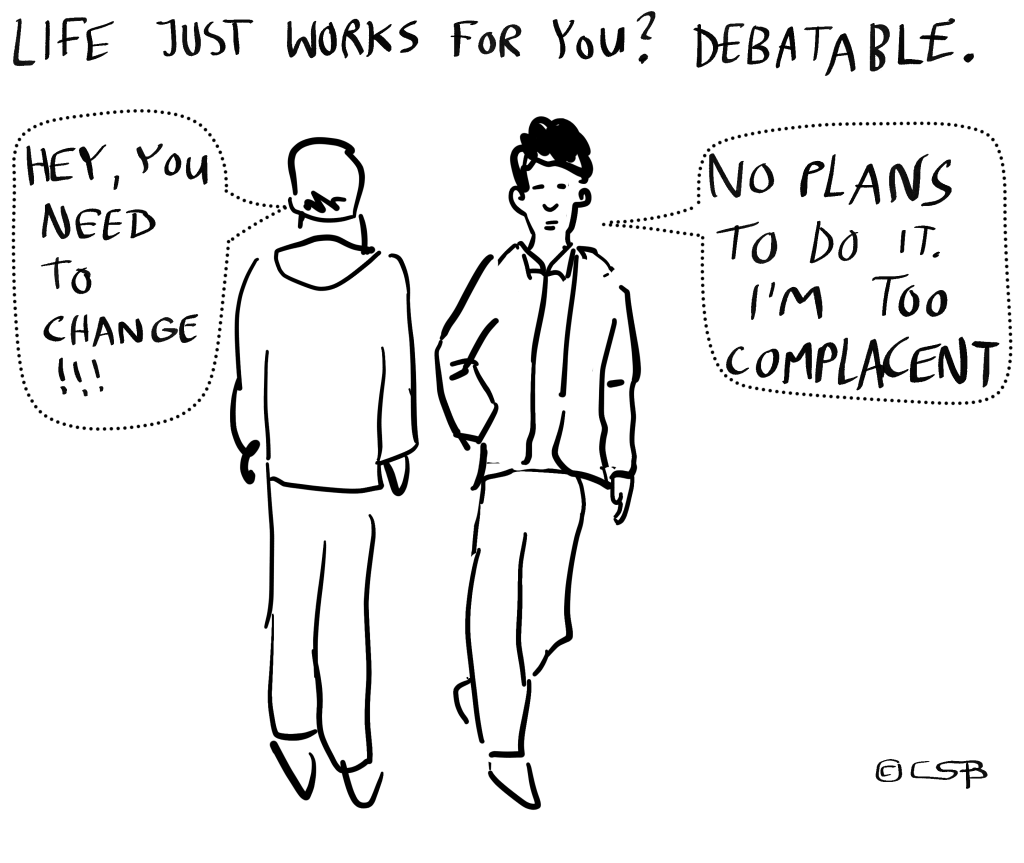 LIFE JUST WORKS FOR YOU? DEBATABLE.
HEY, YOU
NEED
TO
CHANGE
!!!
NO PLANS
TO DO IT.
I'M TOO
COMPLACENT
© CSB